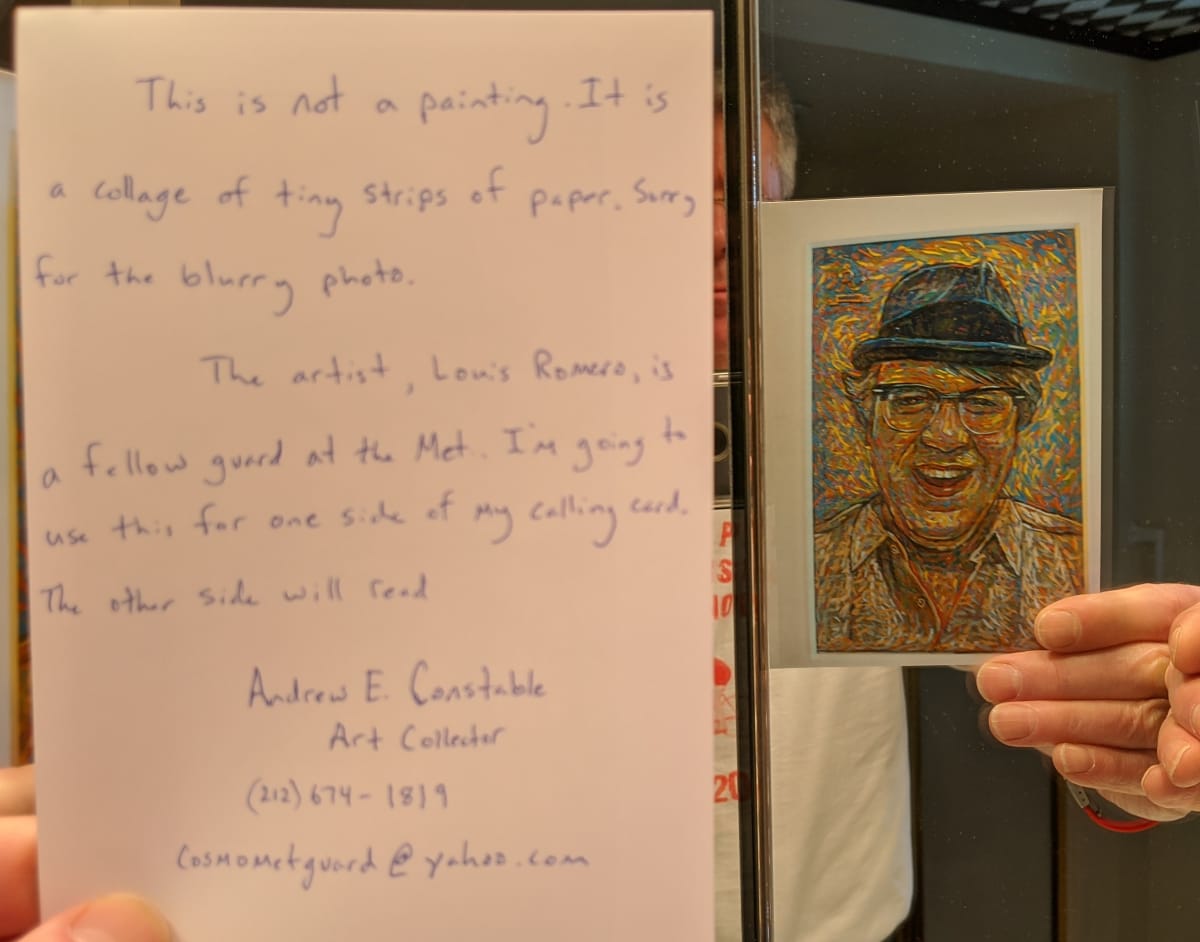 This is not a painting. It is
a collage of tiny strips of paper. Sorry
for the blurry photo.
The artist, Louis Romero, is
a fellow guard at the Met. I'm going to
use this for one side of my calling card.
The other side will read
Andrew E. Constable
Art Collector
(212) 674-1819
Cosmometguard@yahoo.com
20